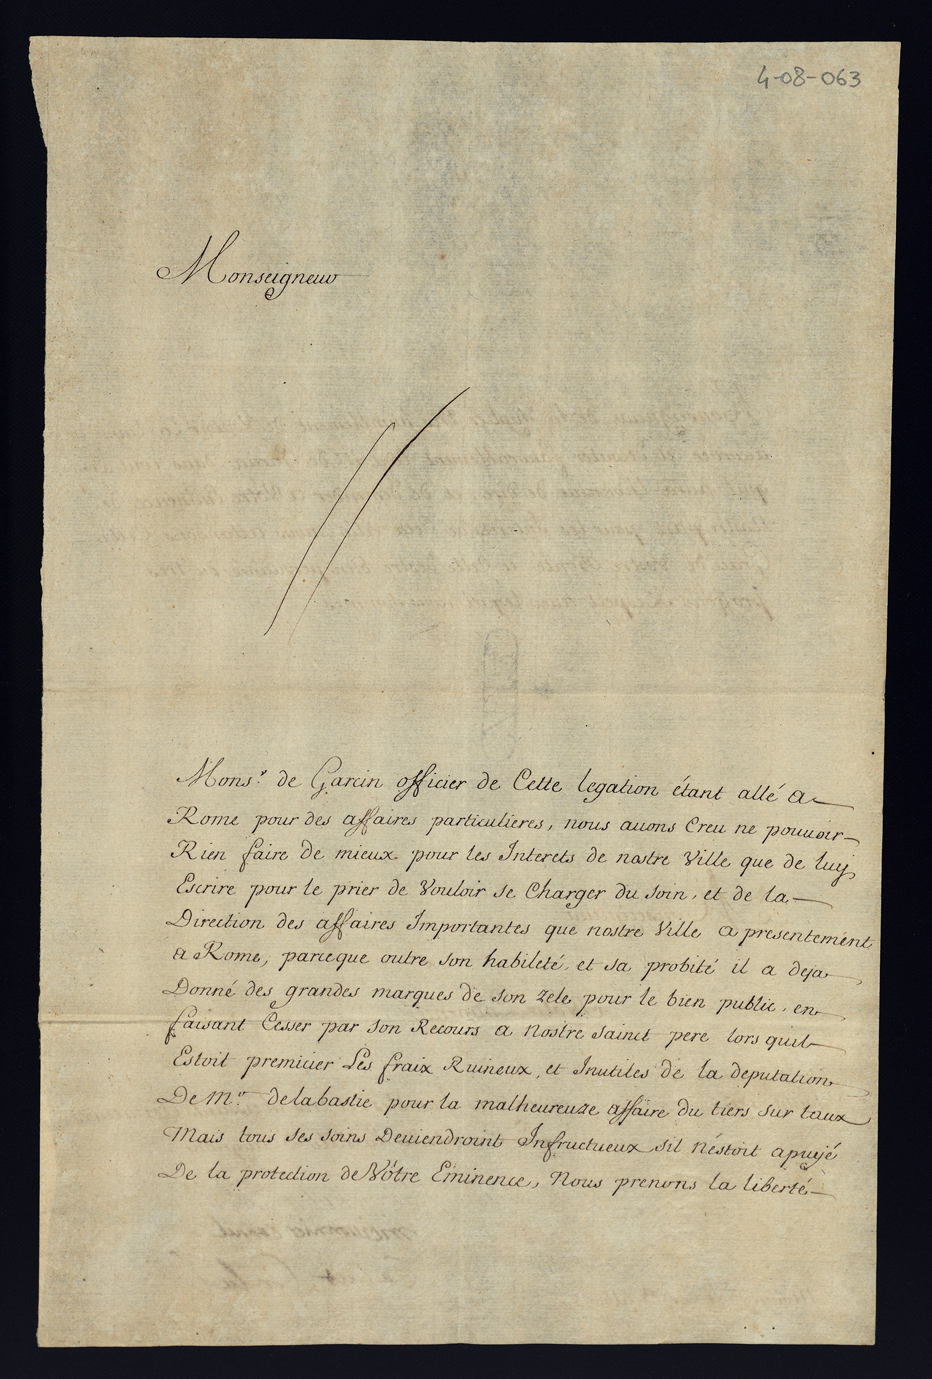 4-08-063
Monseigneur
Mons.r de Garcin officier de Cette legation étant allé a
Rome pour des affaires particulieres, nous auons Creu ne pouuoir
Rien faire de mieux pour les Interets de nostre Ville que de luy
Escrire pour le prier de Vouloir se Charger du soin, et de la
Direction des affaires Importantes que nostre Ville a presentement
a Rome, parceque outre son habileté, et sa probité il a deja
Donné des grandes marques de son zele pour le bien public, en
faisant Cesser par son Recours a Nostre sainct pere lors quil
Estoit premicier Les fraix Ruineux, et Inutiles de la deputation
De M.r delabastie pour la malheureuze affaire du tiers sur taux
Mais tous ses soins Deuiendroint Infructueux sil n'éstoit apuyé
De la protection de Vôtre Eminence, Nous prenons la liberté